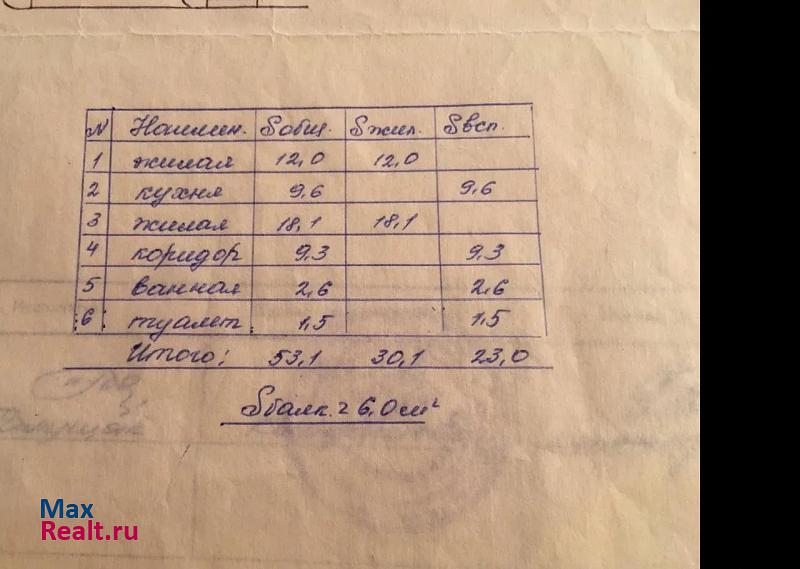 N Наимен. Sобщ. Sжил. Sвсп.
1 жилая 12,0 12,0
2 кухня 9,6 9,6
3 жилая 18,1 18,1
4 коридор 9,3 9,3
5 ванная 2,6 2,6
6 туалет 1,5 1,5
Итого: 53,1 30,1 23,0
Sбалк. 2 6,0 м²
Max
Realt.ru